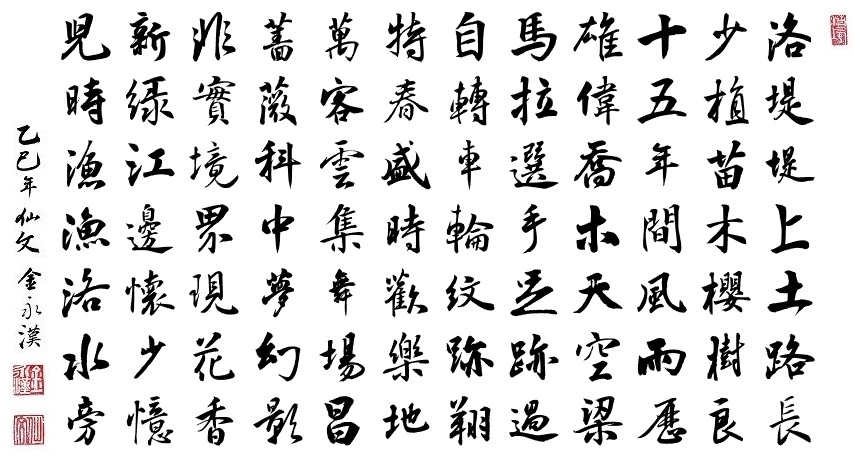 洛堤堤上土路長
少植苗木櫻樹良
十五年間風雨歷
雄偉喬木天空梁
馬拉選手足跡過
自轉車輪紋跡翔
特春盛時歡樂地
萬客雲集舞場昌
薔薇科中夢幻影
非實境界現花香
新綠江邊懷少憶
兒時漁漁洛水旁
乙巳年仙文金永漢